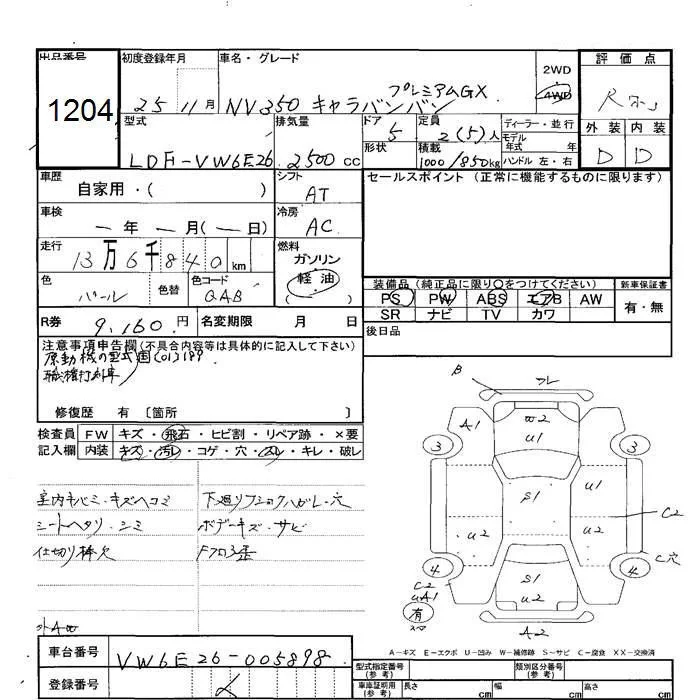 出品番号 初度登録年月 車名・グレード 評価点
1204 25 11月 NV350 キャラバンバン プレミアムGX 2WD 4WD
型式 排気量 ドア 定員 ディーラー・並行 外装 内装
LDF-VW6E26 2500cc 5 2(5)人 モデル年式 年 D D
形状 積載 1000/850kg ハンドル 左・右
車歴 シフト セールスポイント (正常に機能するものに限ります)
自家用・( ) AT
車検 冷房
ー年 ー月(ー日) AC
走行 燃料
13万6千840km ガソリン
軽油
色 色替 色コード ( )
パール QAB
装備品 (純正品に限り○をつけてください) 新車保証書
PS PW ABS エアB AW 有・無
SR ナビ TV カワ
R券 9,160円 名変期限 月 日 後日品
注意事項申告欄(不具合内容等は具体的に記入して下さい)
原動機の型式
職権打刻車
修復歴 有 〔箇所 〕
検査員 FW キズ・飛石・ヒビ割・リペア跡・×要
記入欄 内装 キズ・汚レ・コゲ・穴・スレ・キレ・破レ
室内キバミ・キズヘコミ 下廻リフショクハガレ・穴
シートヘタリ・シミ ボデーキズ・サビ
仕切リ棒欠 Fフロ歪
外A
B フレ
A1 W2 U1
3 3
S1 U1
U2 U2 C2
4 S1 U2 4 C穴
C2
UA1
有
A2
A-キズ E-エクボ U-凹み W-補修跡 S-サビ C-腐食 XX-交換済
車台番号 VW6E26-005898
登録番号
型式指定番号(参考) 類別区分番号(参考)
車庫証明用(参考) 長さ cm 幅 cm 高さ cm